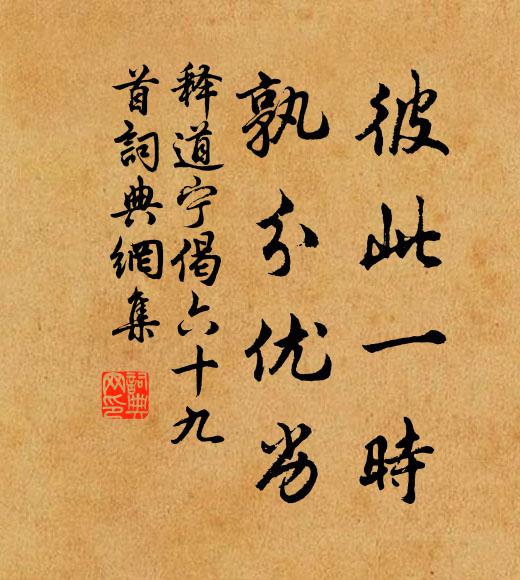 彼此一時
孰分优劣
释道宁偈六十九
首詞典網集
詞典
网印